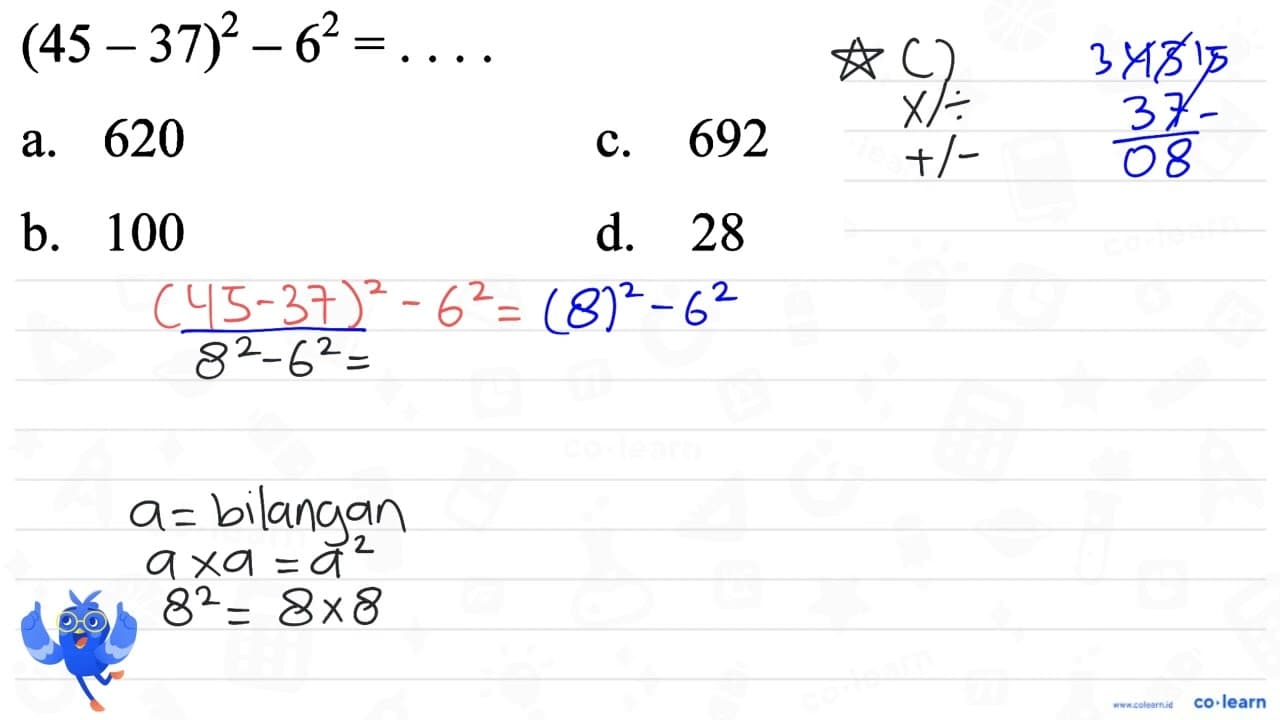 (45 – 37)² – 6² = . . . .
a. 620
c. 692
b. 100
d. 28
☆ ( )
×/÷
+/-
3 45 15
37 -
08
(45-37)² - 6² = (8)² - 6²
8² - 6² =
a = bilangan
a × a = a²
8² = 8 × 8
co·learn
www.colearn.id co·learn